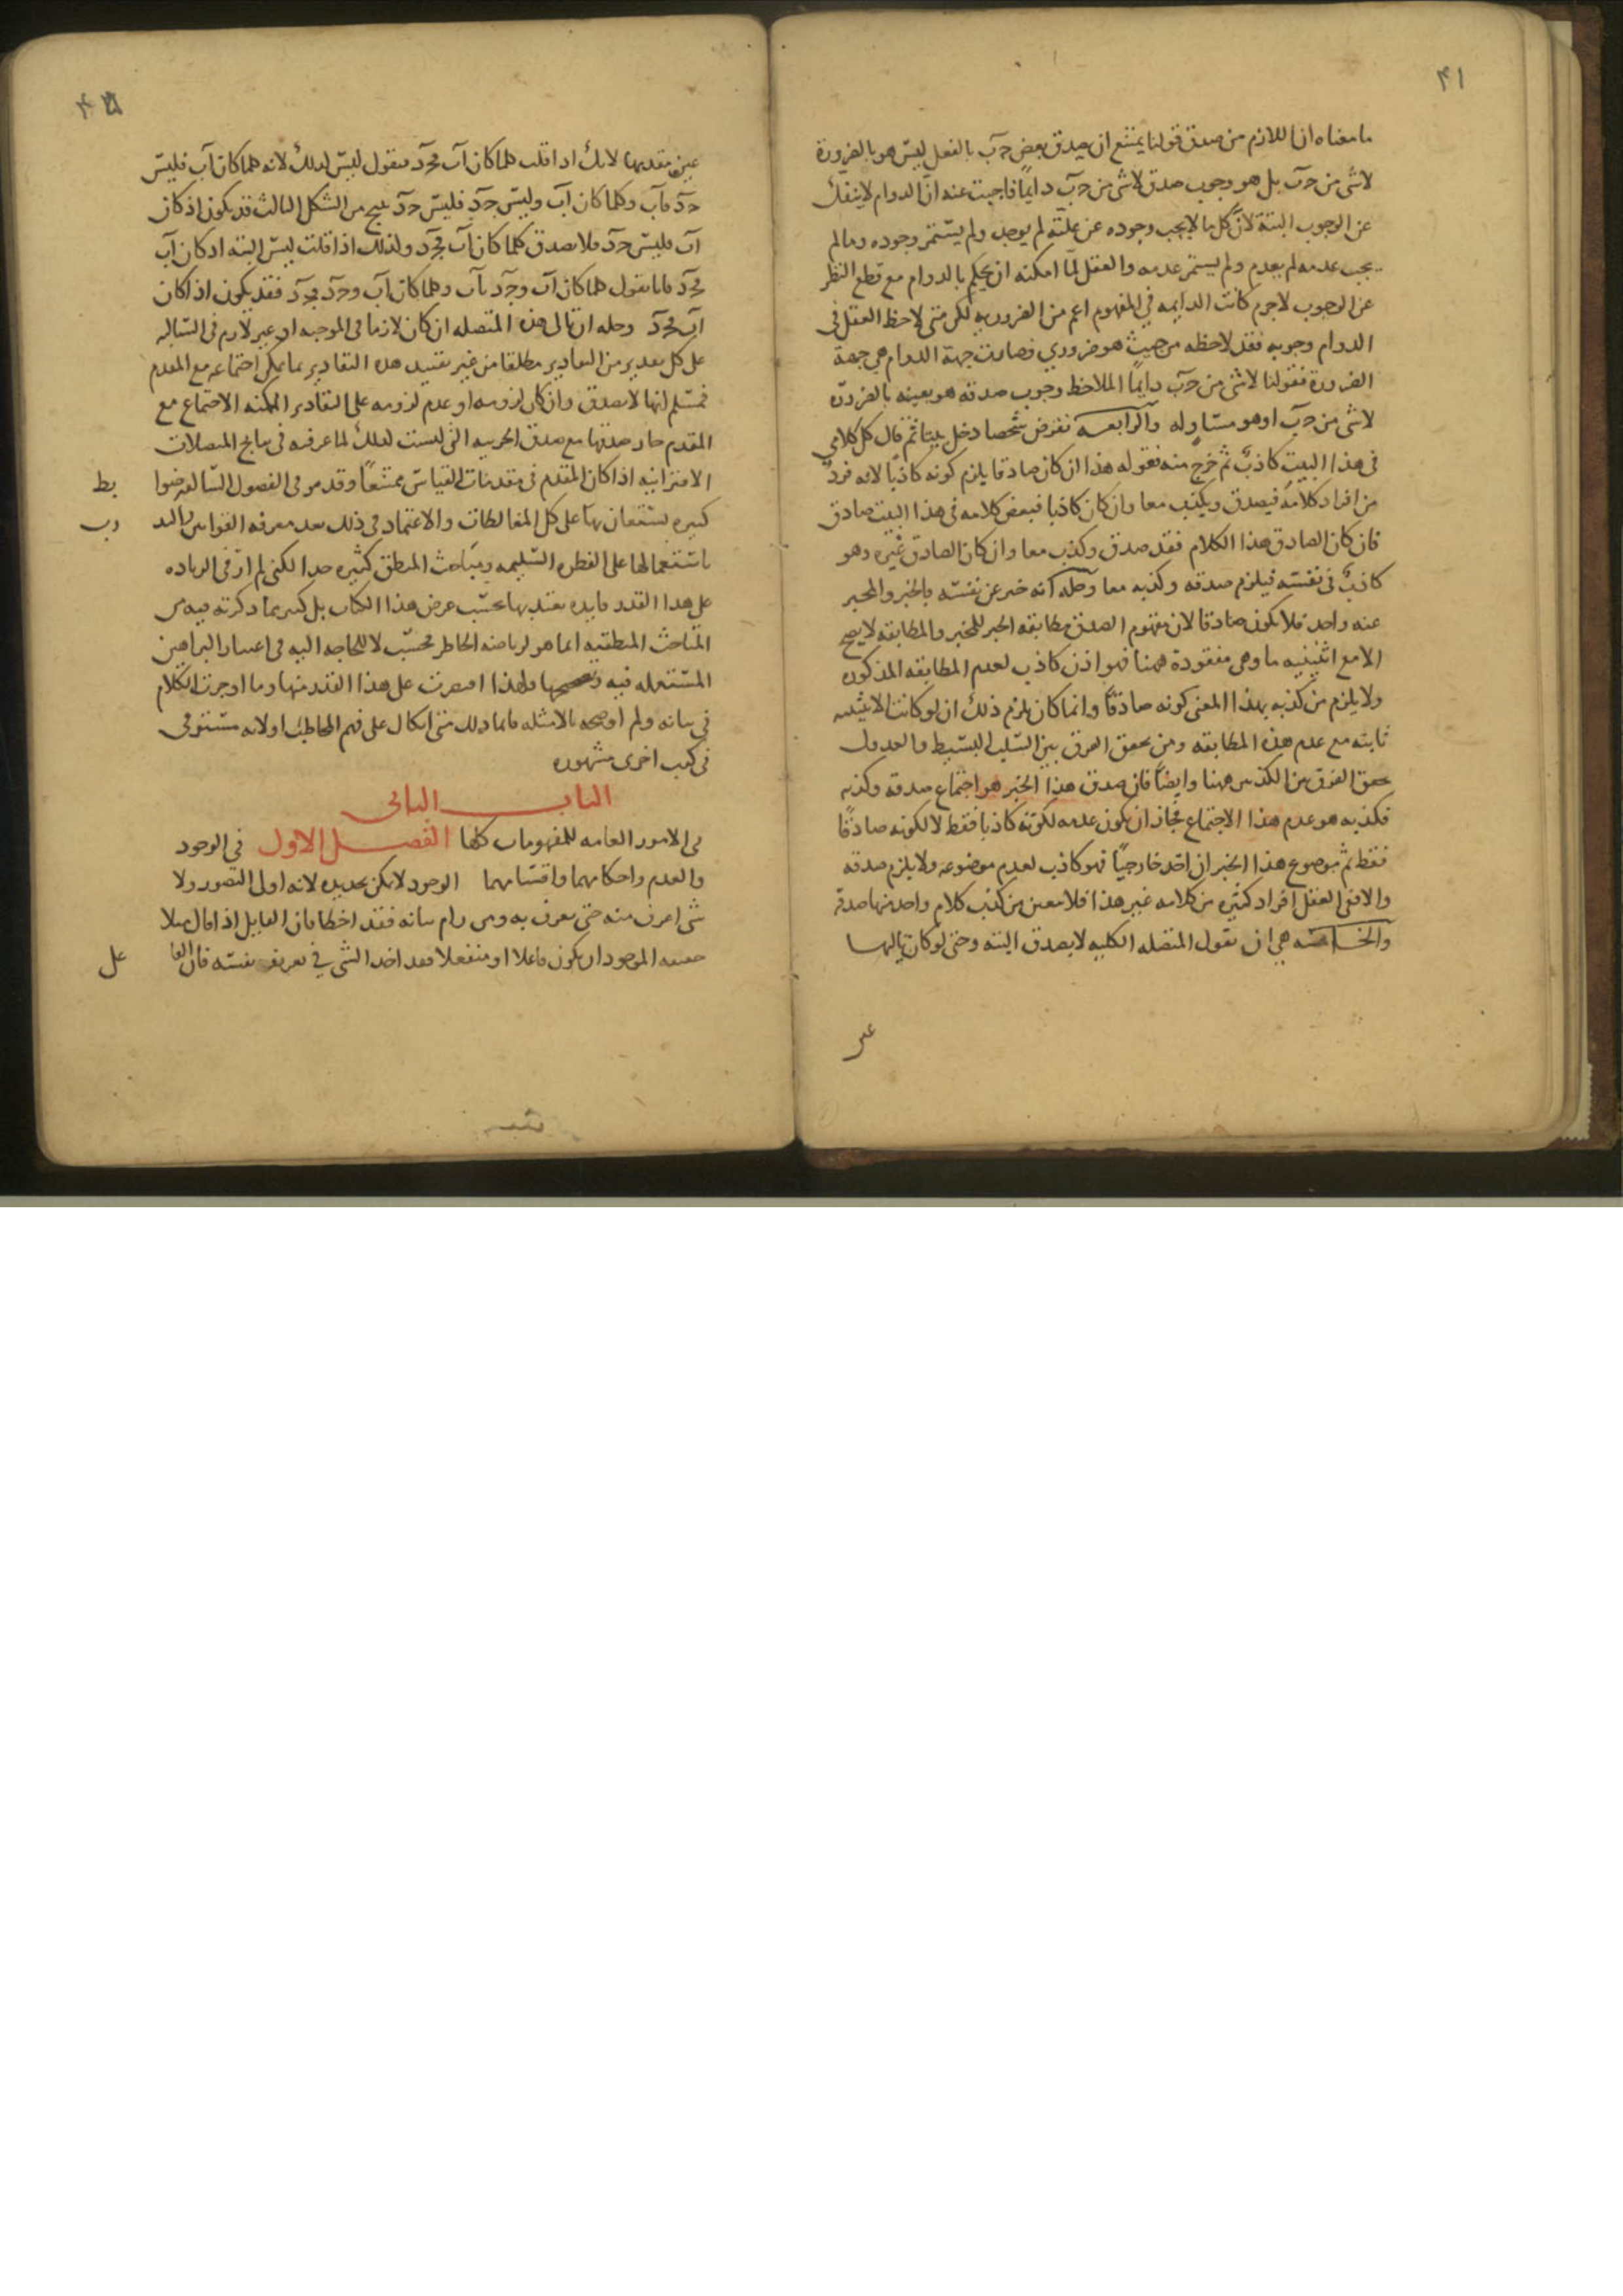 ٤١
ما معناه ان اللازم من صدق قولنا يمتنع ان يصدق بعض جَ بَ بالفعل ليس هو بالضرورة
لا شى من جَ بَ بل هو وجوب صدق لا شى من جَ بَ دايمًا فاجبت عنه ان الدوام لا ينفك
عن الوجوب البتة لان كل ما لا يجب وجوده عن علته لم يوجد ولم يستمر وجوده وما لم
يجب عدمه لم يعدم ولم يستمر عدمه والعقل لما امكنه ان يحكم بالدوام مع قطع النظر
عن الوجوب لا جرم كانت الدايمه في المفهوم اعم من الضروريه لكن متى لاحظ العقل فى
الدوام وجوبه فقد لاحظه من حيث هو ضروري فصارت جهة الدوام هي جهة
الضرورة فقولنا لا شى من جَ بَ دايمًا الملاحظ وجوب صدقه هو بعينه بالضرورة
لا شى من جَ بَ او هو مساوٍ له والرابعـــه نفرض شخصا دخل بيتا ثم قال كل كلامي
فى هذا البيت كاذبٌ ثم خرج منه فقوله هذا ان كان صادقا يلزم كونه كاذبا لانه فردٌ
من افراد كلامه فيصدق ويكذب معا وان كان كاذبا فبعض كلامه فى هذا البيت صادق
فان كان الصادق هذا الكلام فقد صدق وكذب معا وان كان الصادق غيره وهو
كاذبٌ فى نفسه فيلزم صدقه وكذبه معا وحله انه خبر عن نفسه فالخبر والمخبر
عنه واحد فلا يكون صادقا لان مفهوم الصدق مطابقه الخبر للمخبر والمطابقه لا يصح
الا مع اثنينيه ما وهى مفقودة ههنا فهو اذن كاذب لعدم المطابقه المذكوره
ولا يلزم من كذبه بهذا المعنى كونه صادقا وانما كان يلزم ذلك ان لو كانت الاثنينيه
ثابته مع عدم هذه المطابقه ومن تحقق الفرق بين السلب البسيط والعدول
تحقق الفرق بين الكذبين ههنا وايضًا فان صدق هذا الخبر هو اجتماع صدقه وكذبه
فكذبه هو عدم هذا الاجتماع فجاز ان يكون عدمه لكونه كاذبا فقط لا لكونه صادقًا
فقط ثم موضوع هذا الخبر ان اخذ خارجيًا فهو كاذب لعدم موضوعه ولا يلزم صدقه
والا ففى العقل افراد كثيره من كلامه غير هذا فلا يتعين من كذب كلام واحد منها صدقه
والخــامسه هي ان نقول المتصله الكليه لا يصدق البته وحتى لو كان تاليها
عين
عين مقدمها لانك اذا قلت كلما كان آب فجَ دَ فنقول ليس كذلك لانه كلما كان آب فليس
جَ دَ فآب وكلما كان آب وليس جَ دَ فليس جَ دَ ينتج من الشكل الثالث قد يكون اذا كان
آب فليس جَ دَ فلا يصدق كلما كان آب فجَ دَ وكذلك اذا قلت ليس البته اذا كان آب
فجَ دَ فانا نقول كلما كان آب وجَ دَ فآب وكلما كان آب وجَ دَ فجَ دَ فقد يكون اذا كان
آب فجَ دَ وحله ان تالى هذه المتصله ان كان لازما فى الموجبه او غير لازم فى السالبه
على كل تقدير من التقادير مطلقا من غير تقييد هذه التقادير بما يمكن اجتماعه مع المقدم
فمسلم انها لا تصدق وان كان لزومه او عدم لزومه على التقادير الممكنه الاجتماع مع
المقدم جاز صدقها مع صدق الجزييه التى ليست كذلك لما عرفته فى نتايج المتصلات
الاقترانيه اذا كان المقدم فى مقدمات القياس ممتنعًا وقد مر فى الفصول السالفه ضوابط
كثيره يستعان بها على كل المغالطات والاعتماد فى ذلك بعد معرفه القوانين والتدرب
باستعمالها على الفطره السليمه ومباحث المنطق كثيره جدا لكنى لم ار فى الزياده
على هذا القدر فايده يعتد بها بحسب غرض هذا الكتاب بل كثير مما ذكرته فيه من
المباحث المنطقيه انما هو لرياضه الخاطر فحسب لا للحاجه اليه فى اعتبار البراهين
المستعمله فيه وتصحيحها ولهذا اقتصرت على هذا القدر منها وما اوجزت الكلام
فى بيانه ولم اوضحه بالامثله فانما ذلك منى اتكال على فهم المخاطب او لانه مستوفى
فى كتب اخرى مشهوره
البابــــــ الثانى
فى الامور العامه للمفهومات كلها الفصــــل الاول فى الوجود
والعدم واحكامهما واقسامهما الوجود لا يمكن تحديده لانه اولى التصور ولا
شى اعرف منه حتى يعرف به ومن رام بيانه فقد اخطا فان القايل اذا قال مثلا
حقيقه الموجود ان يكون فاعلا او منفعلا فقد اخذ الشى في تعريف نفسه فان الفاعل